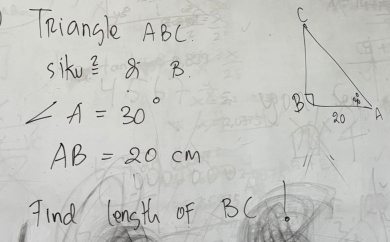 Triangle ABC.
siku² di B.
∠ A = 30°
AB = 20 cm
Find length OF BC !
C
B
A
20